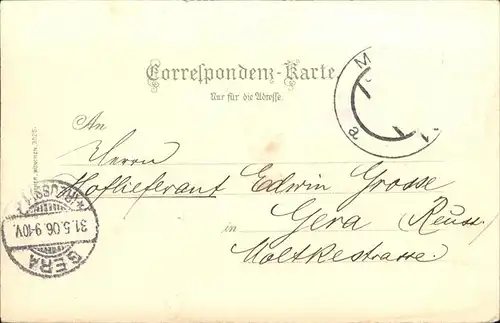 Correspondenz-Karte.
Nur für die Adresse.
An
Herrn
Hoflieferant Edwin Grosse
in Gera (Reuss)
Moltkestrasse.
31.5.06.9-10V.
GERA